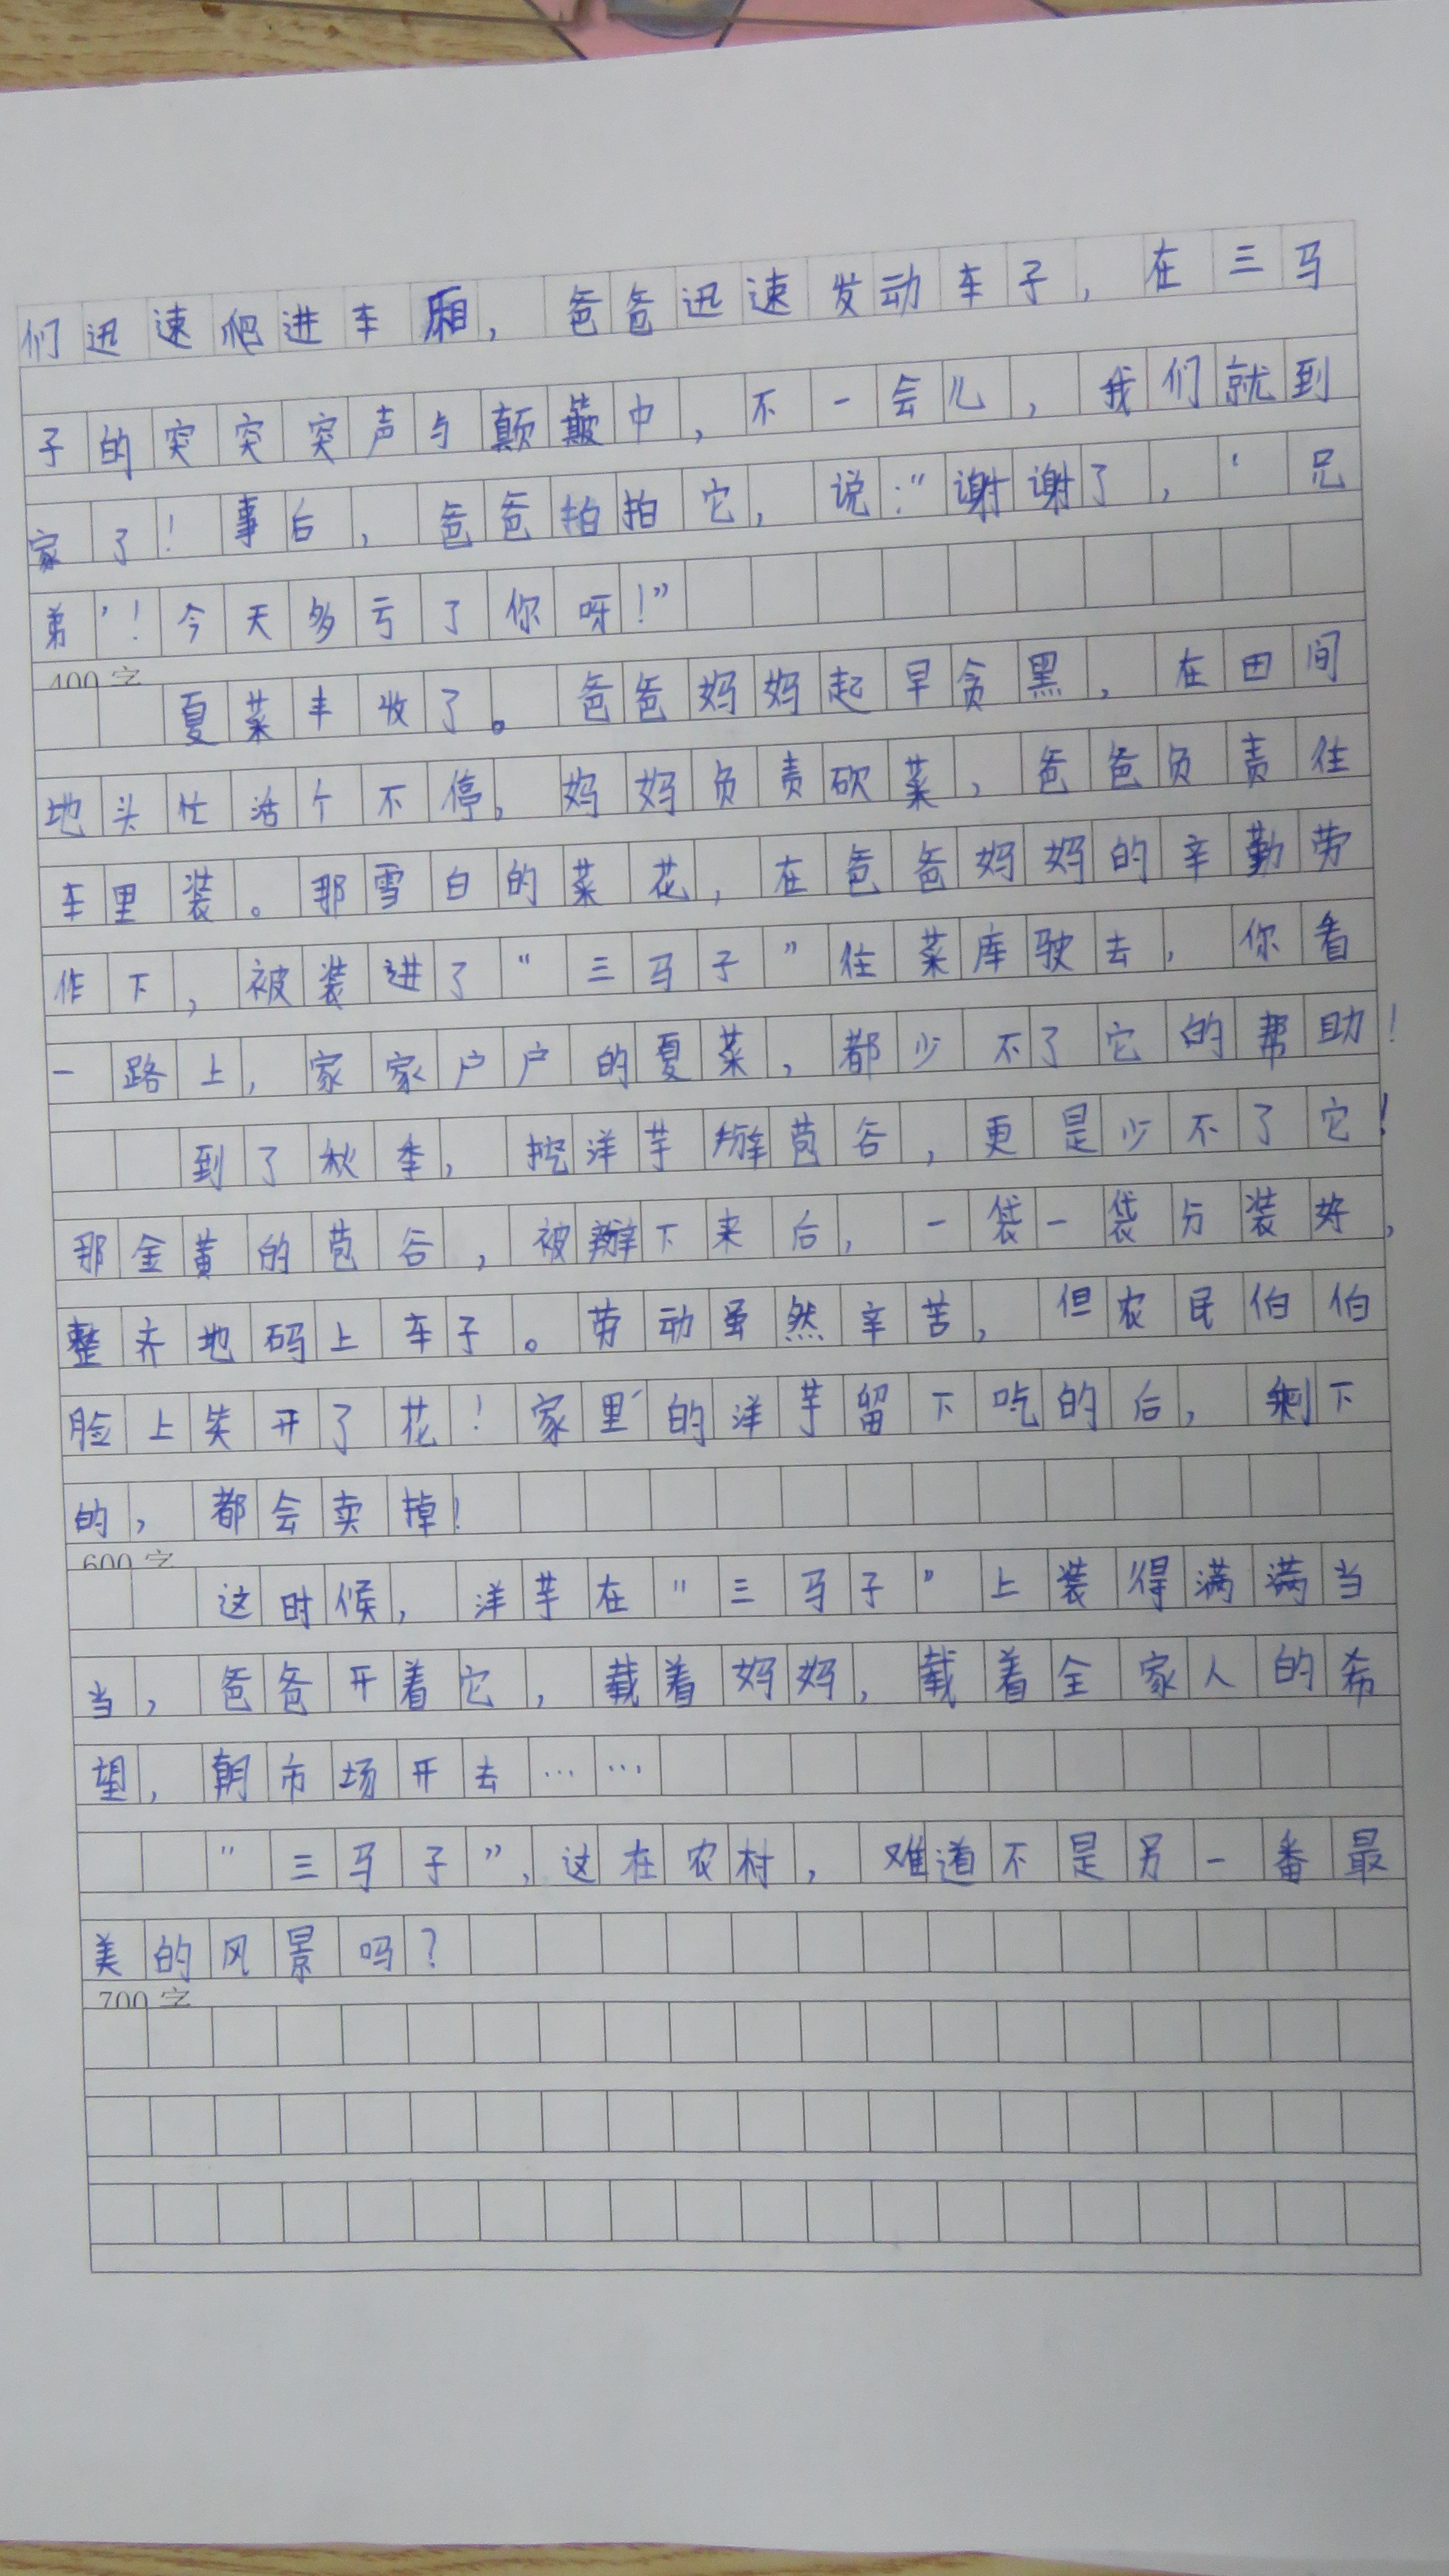 们迅速爬进车厢，爸爸迅速发动车子，在三马
子的突突突声与颠簸中，不一会儿，我们就到
家了！事后，爸爸拍拍它，说：“谢谢了，‘兄
弟’！今天多亏了你呀！”
400字
夏菜丰收了。爸爸妈妈起早贪黑，在田间
地头忙活个不停。妈妈负责砍菜，爸爸负责往
车里装。那雪白的菜花，在爸爸妈妈的辛勤劳
作下，被装进了“三马子”往菜库驶去，你看
一路上，家家户户的夏菜，都少不了它的帮助！
到了秋季，挖洋芋掰苞谷，更是少不了它！
那金黄的苞谷，被掰下来后，一袋一袋分装好，
整齐地码上车子。劳动虽然辛苦，但农民伯伯
脸上笑开了花！家里的洋芋留下吃的后，剩下
的，都会卖掉！
600字
这时候，洋芋在“三马子”上装得满满当
当，爸爸开着它，载着妈妈，载着全家人的希
望，朝市场开去……
“三马子”，这在农村，难道不是另一番最
美的风景吗？
700字